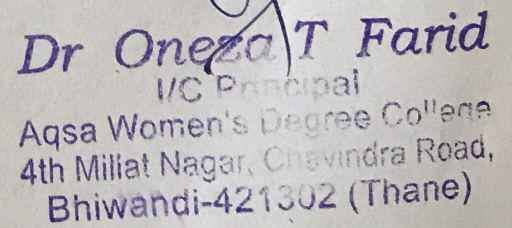 Dr Oneza T Farid
I/C Principal
Aqsa Women's Degree College
4th Millat Nagar, Chavindra Road,
Bhiwandi-421302 (Thane)